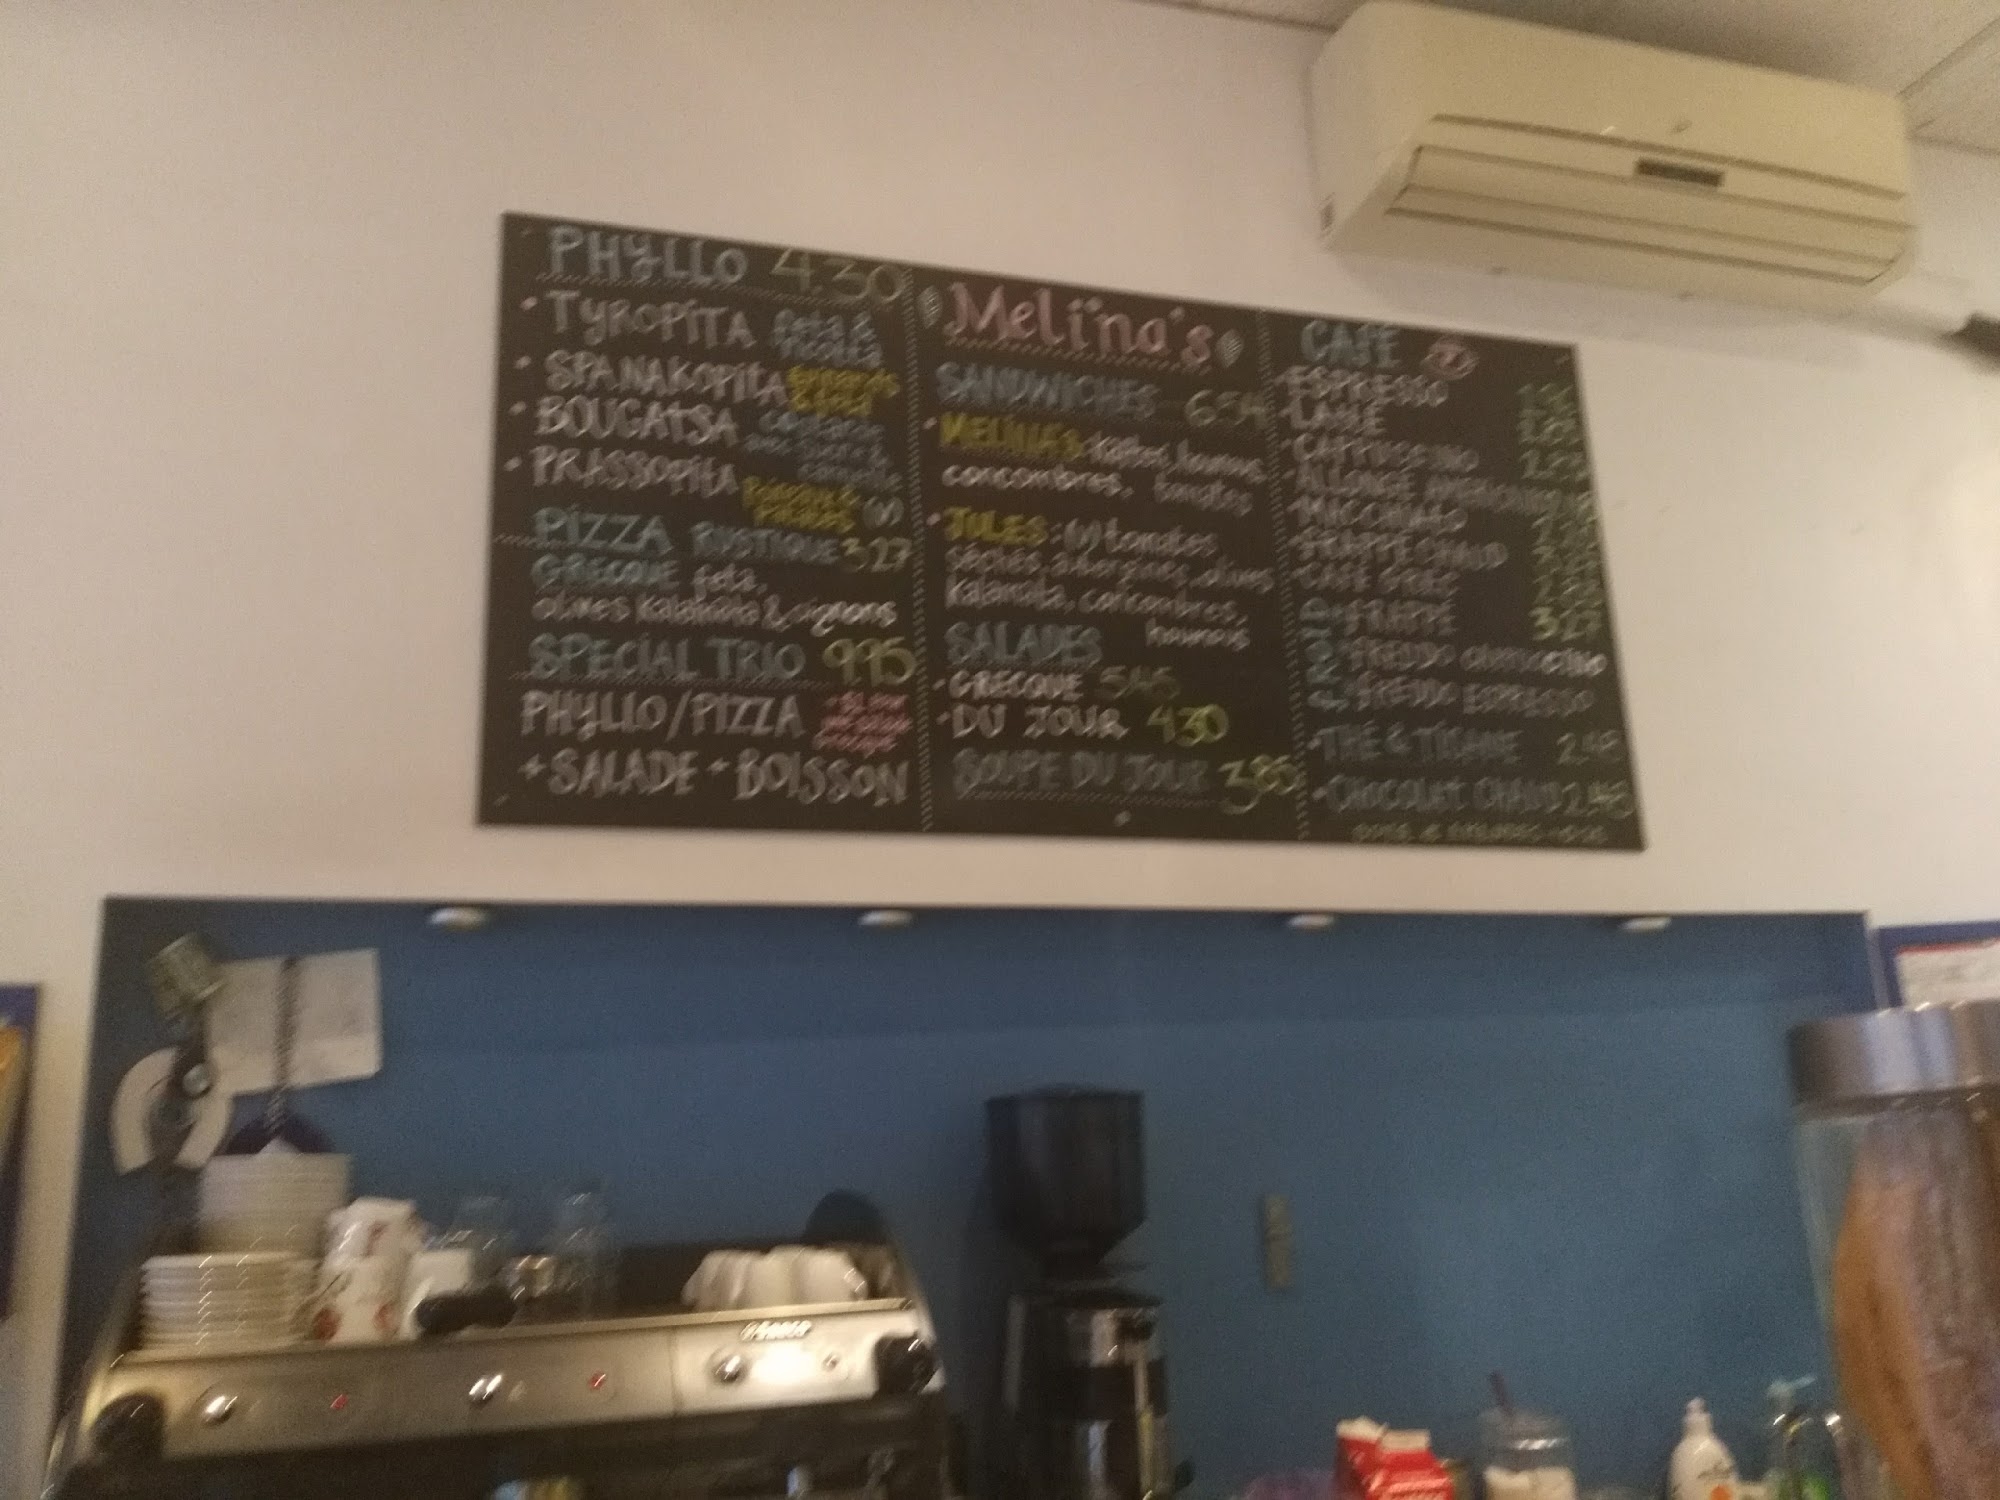 PHYLLO 4.30
• TYROPITA feta & ricotta
• SPANAKOPITA
• BOUGATSA
• PRASSOPITA (V)
PIZZA RUSTIQUE 3.27
GRECQUE feta,
olives kalamata & oignons
SPECIAL TRIO 9.95
PHYLLO/PIZZA
+ SALADE + BOISSON
Melina's
SANDWICHES 6.54
• MELINA'S:
concombres, tomates
• JULES: (V) tomates
séchés, aubergines, olives
kalamata, concombres,
houmous
SALADES
• GRECQUE 5.45
• DU JOUR 4.30
SOUPE DU JOUR 3.85
CAFÉ
• ESPRESSO
• LATTÉ
• CAPPUCCINO
• ALLONGÉ AMERICAIN
• MACCHIATO
• FRAPPÉ CHAUD
• CAFÉ GREC
• FRAPPÉ 3.27
• FREDDO CAPPUCCINO
• FREDDO ESPRESSO
• THÉ & TISANE 2.48
• CHOCOLAT CHAUD 2.48